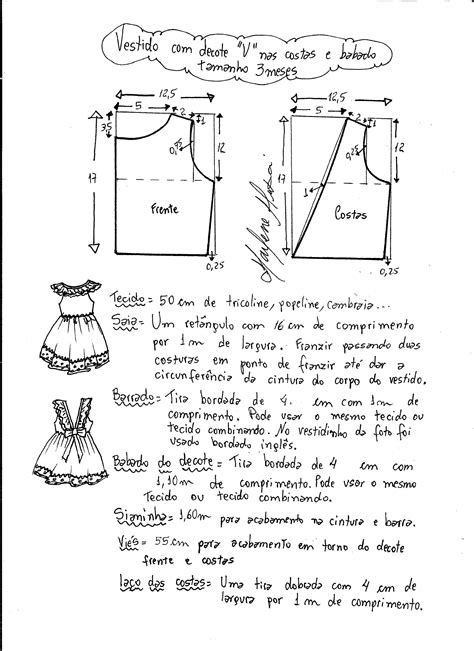 Vestido com decote "V" nas costas e babado
tamanho 3 meses
12,5
5
2
1
3,5
0,25
12
17
Frente
0,25
12,5
5
2
1
0,25
12
17
1
Costas
0,25
Marlene Mukai
Tecido = 50 cm de tricoline, popeline, cambraia...
Saia = Um retângulo com 16 cm de comprimento
por 1 m de largura. Franzir passando duas
costuras em ponto de franzir até dar a
circunferência da cintura do corpo do vestido.
Barrado = Tira bordada de 4. cm com 1 m de
comprimento. Pode usar o mesmo tecido ou
tecido combinando. No vestidinho da foto foi
usado bordado inglês.
Babado do decote = Tira bordada de 4 cm com
1,10 m de comprimento. Pode usar o mesmo
Tecido ou tecido combinando.
Sianinha = 1,60m para acabamento na cintura e barra.
Viés = 55 cm para acabamento em torno do decote
frente e costas
laço das costas = Uma tira dobrada com 4 cm de
largura por 1 m de comprimento.